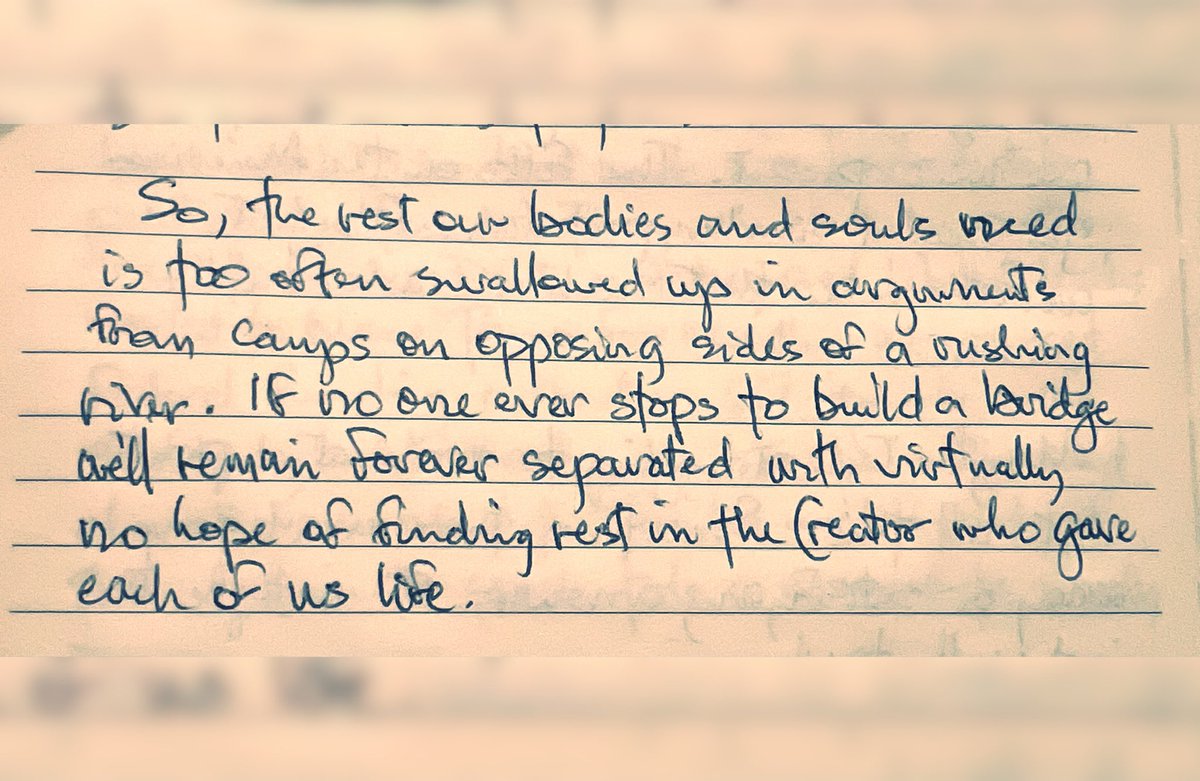 So, the rest our bodies and souls need
is too often swallowed up in arguments
from camps on opposing sides of a rushing
river. If no one ever stops to build a bridge
we'll remain forever separated with virtually
no hope of finding rest in the Creator who gave
each of us life.